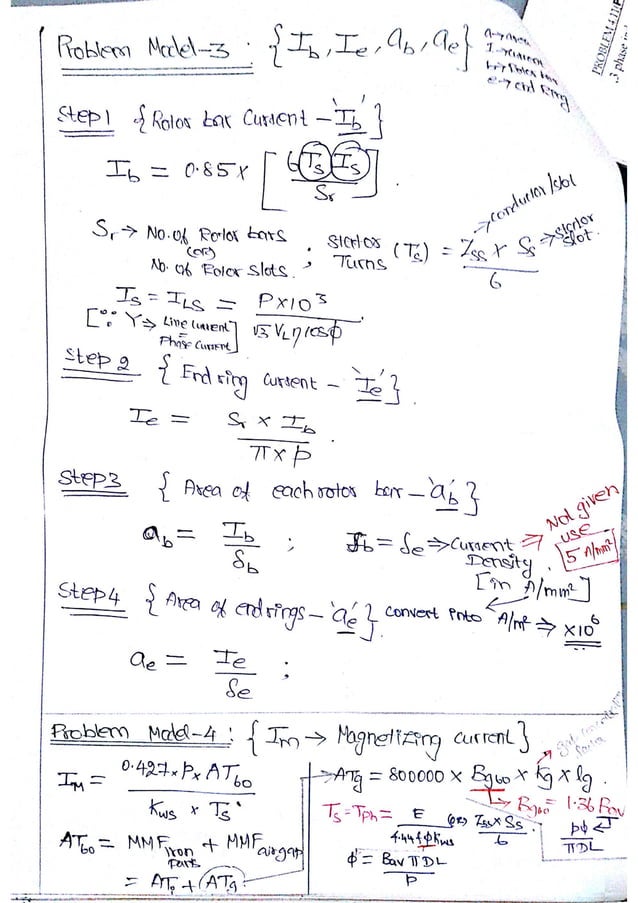 Problem Model-3 : {Ib, Ie, ab, ae}
a→Area
I→current
b→Rotor bar
e→end Ring
PROBLEM 4.11
3 phase in
Step1 {Rotor bar Current - 'Ib'}
Ib = 0.85 × [6 Ts Is / Sr].
Sr → No. of Rotor bars (or) No. of Rotor slots. ; Stator Turns (Ts) = Zss × Ss / 6
→ conductor/slot
→ stator slot.
Is = ILs = P×10³ / √3 VL η cosφ
[∵ Y → Line current = Phase Current]
Step 2 {End ring current - 'Ie'}.
Ie = Sr × Ib / π × p.
Step3 {Area of each rotor bar - 'ab'}
ab = Ib / δb ; δb = δe ⇒ Current Density. [in A/mm²]
⇒ Not given use 5 A/mm²
Step4 {Area of endrings - 'ae'}. Convert into A/m² ⇒ ×10⁶
ae = Ie / δe ;
Problem Model-4 : {Im → Magnetizing current}
IM = 0.427 × P × AT60 / Kws × Ts
AT60 = MMF iron parts + MMF airgap
= ATi + ATg
ATg = 800000 × Bg60 × Kg × lg.
Bg60 = 1.36 Bav
pφ / πDL
Ts = Tph = E / 4.44 f φ Kws (or) Zss × Ss / 6.
φ = Bav πDL / p